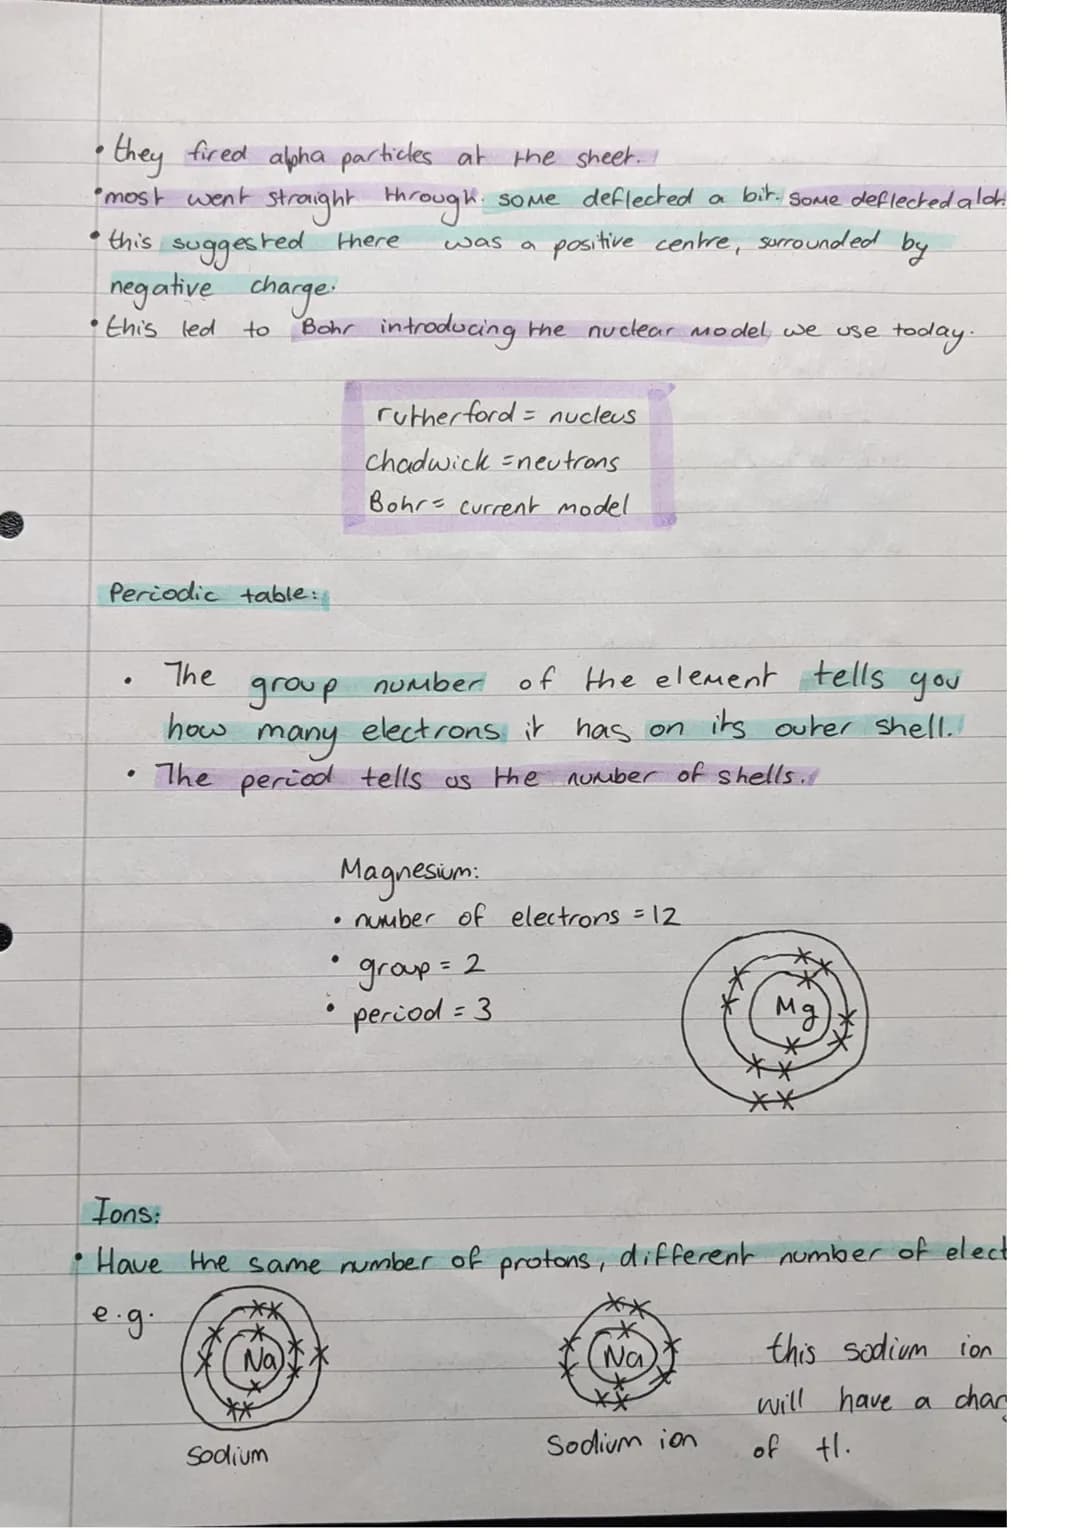 • they fired alpha particles at the sheet.
• most went straight through. some deflected a bit. some deflected a lot.
• this suggested there was a positive centre, surrounded by
negative charge.
• this led to Bohr introducing the nuclear model, we use today.
rutherford = nucleus
Chadwick = neutrons
Bohr = current model
Periodic table:
• The group number of the element tells you
how many electrons it has on its outer shell.
• The period tells us the number of shells.
Magnesium:
• number of electrons = 12
• group = 2
• period = 3
Mg
Ions:
• Have the same number of protons, different number of elect
e.g.
Na
Na
this sodium ion
will have a char
of +1.
Sodium
Sodium ion